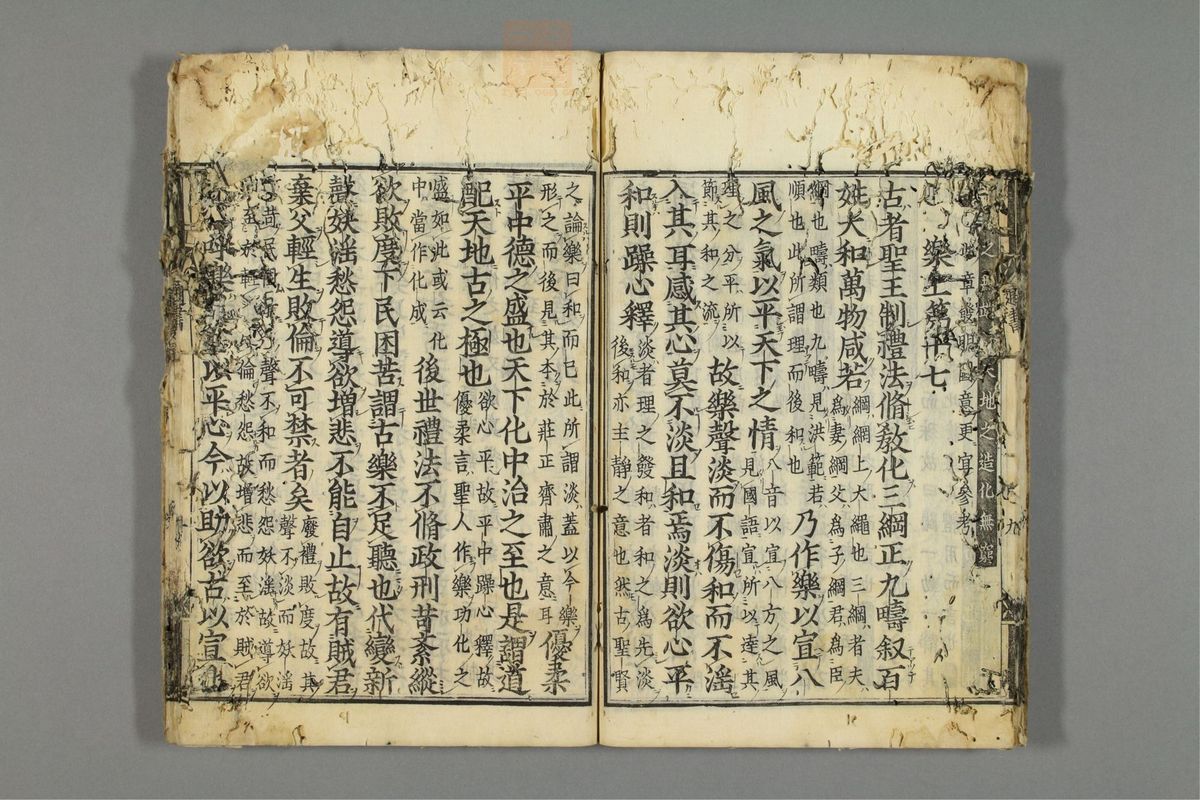 天地之造化無窮
此章發明圖意更宜參考
樂上第十七
古者聖王制禮法脩敎化三綱正九疇叙百
姓大和萬物咸若
綱網上大繩也三綱者夫
爲妻綱父爲子綱君爲臣
綱也疇類也九疇見洪範若
順也此所謂理而後和也
乃作樂以宣八
風之氣以平天下之情
八音以宣八方之風
見國語宣所以達其
理之分平所以
節其和之流
故樂聲淡而不傷和而不淫
入其耳感其心莫不淡且和焉淡則欲心平
和則躁心釋
淡者理之發和者和之爲先淡
後和亦主靜之意也然古聖賢
之論樂曰和而已此所謂淡蓋以今樂
形之而後見其本於莊正齊肅之意耳
優柔
平中德之盛也天下化中治之至也是謂道
配天地古之極也
欲心平故平中躁心釋故
優柔言聖人作樂功化之
盛如此或云化
中當作化成
後世禮法不脩政刑苛紊縱
欲敗度下民困苦謂古樂不足聽也代變新
聲妖淫愁怨導欲增悲不能自止故有賊君
棄父輕生敗倫不可禁者矣
廢禮敗度故其
聲不淡而妖淫
苛民困故其聲不和而愁怨妖淫故導欲
而至於輕生敗倫愁怨故增悲而至於賊君
呼樂者古以平心今以助欲古以宣